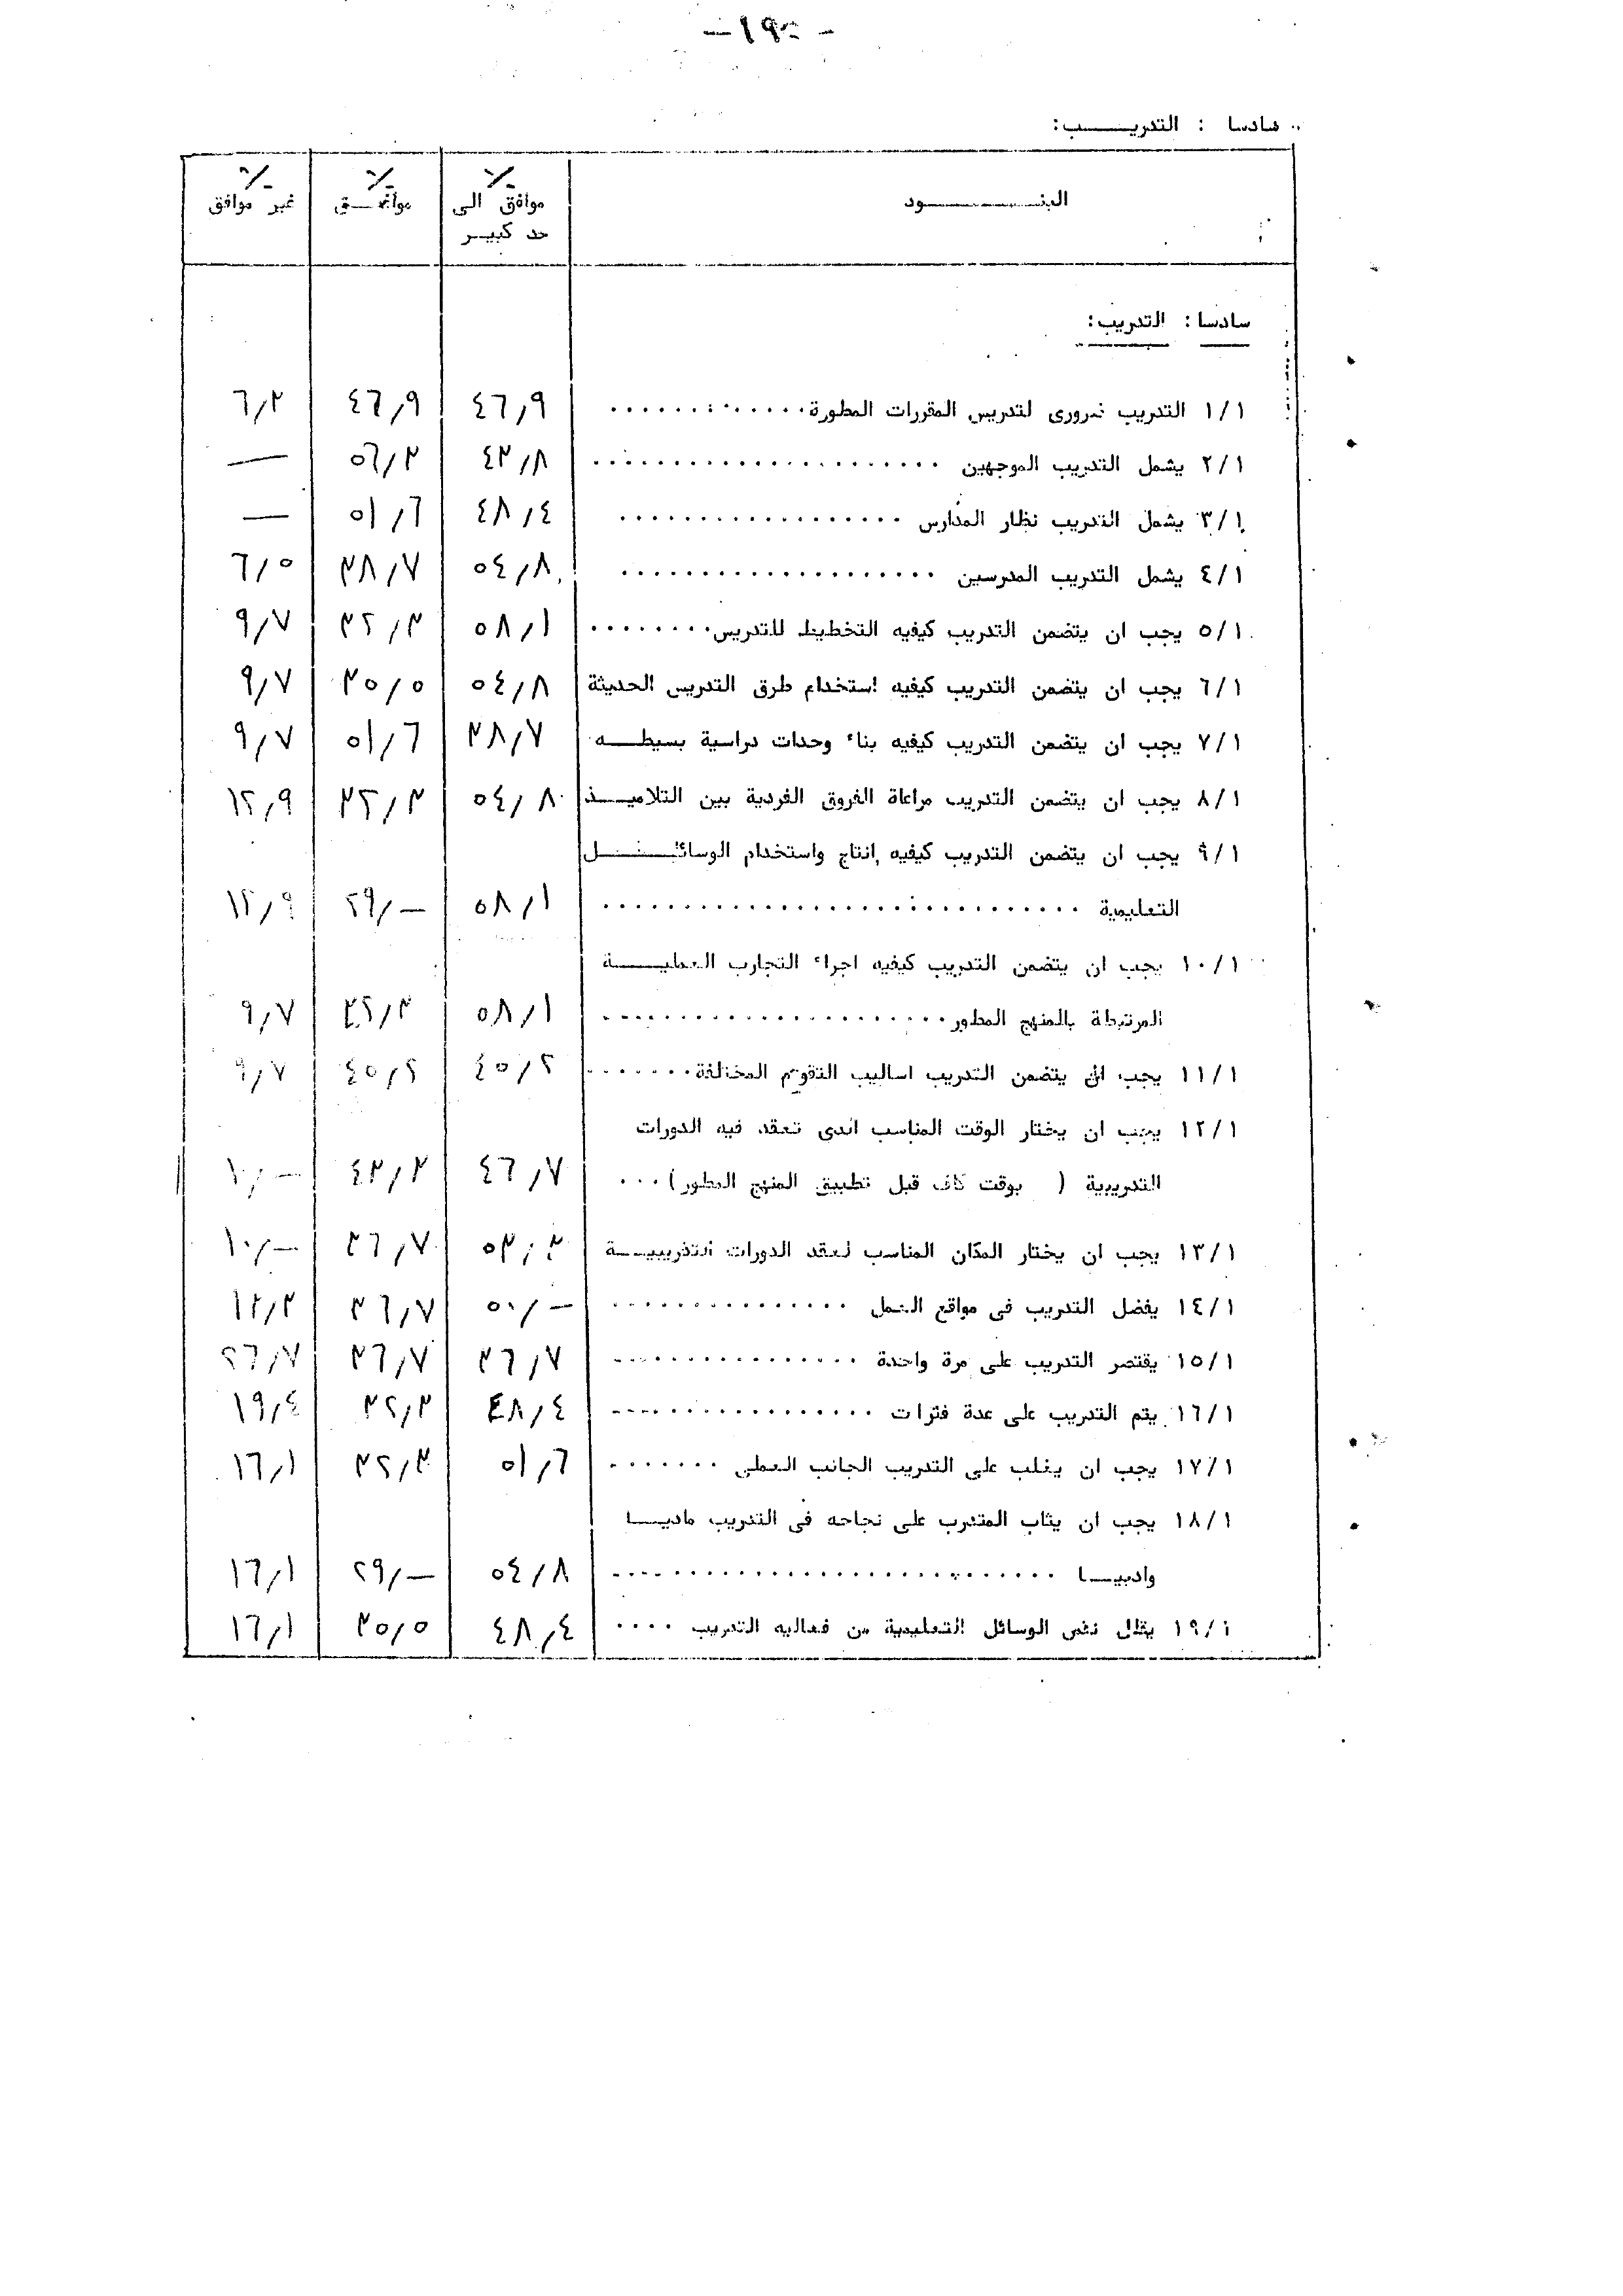 سادسا : التدريـــب:
البنـــــــود ٪ موافق الى حد كبيـر ٪ موافـق ٪ غير موافق
سادسا : التدريب:
١/١ التدريب ضرورى لتدريس المقررات المطورة ٤٦,٩ ٤٦,٩ ٦,٣
٢/١ يشمل التدريب الموجهين ٤٣,٨ ٥٦,٣ —
٣/١ يشمل التدريب نظار المدارس ٤٨,٤ ٥١,٦ —
٤/١ يشمل التدريب المدرسين ٥٤,٨ ٣٨,٧ ٦,٥
٥/١ يجب ان يتضمن التدريب كيفيه التخطيط للتدريس ٥٨,١ ٣٢,٣ ٩,٧
٦/١ يجب ان يتضمن التدريب كيفيه استخدام طرق التدريس الحديثة ٥٤,٨ ٣٥,٥ ٩,٧
٧/١ يجب ان يتضمن التدريب كيفيه بناء وحدات دراسية بسيطـــه ٣٨,٧ ٥١,٦ ٩,٧
٨/١ يجب ان يتضمن التدريب مراعاة الفروق الفردية بين التلاميـــذ ٥٤,٨ ٣٢,٣ ١٢,٩
٩/١ يجب ان يتضمن التدريب كيفيه إنتاج واستخدام الوسائـــل
التعليمية ٥٨,١ ٢٩,— ١٢,٩
١٠/١ يجب ان يتضمن التدريب كيفيه اجراء التجارب العمليـــة
المرتبطة بالمنهج المطور ٥٨,١ ٣٢,٣ ٩,٧
١١/١ يجب ان يتضمن التدريب اساليب التقويم المختلفة ٤٥,٢ ٤٥,٢ ٩,٧
١٢/١ يجب ان يختار الوقت المناسب الذى تعقد فيه الدورات
التدريبية ( بوقت كاف قبل تطبيق المنهج المطور) ٤٦,٧ ٤٣,٣ ١٠,—
١٣/١ يجب ان يختار المكان المناسب لعقد الدورات التدريبيـــة ٥٣,٣ ٣٦,٧ ١٠,—
١٤/١ يفضل التدريب فى مواقع العمل ٥٠,— ٣٦,٧ ١٣,٣
١٥/١ يقتصر التدريب على مرة واحدة ٣٦,٧ ٣٦,٧ ٢٦,٧
١٦/١ يتم التدريب على عدة فترات ٤٨,٤ ٣٢,٣ ١٩,٤
١٧/١ يجب ان يغلب على التدريب الجانب العملى ٥١,٦ ٣٢,٣ ١٦,١
١٨/١ يجب ان يثاب المتدرب على نجاحه فى التدريب ماديـــا
وادبيـــا ٥٤,٨ ٢٩,— ١٦,١
١٩/١ يقلل نقص الوسائل التعليمية من فعاليه التدريب ٤٨,٤ ٣٥,٥ ١٦,١